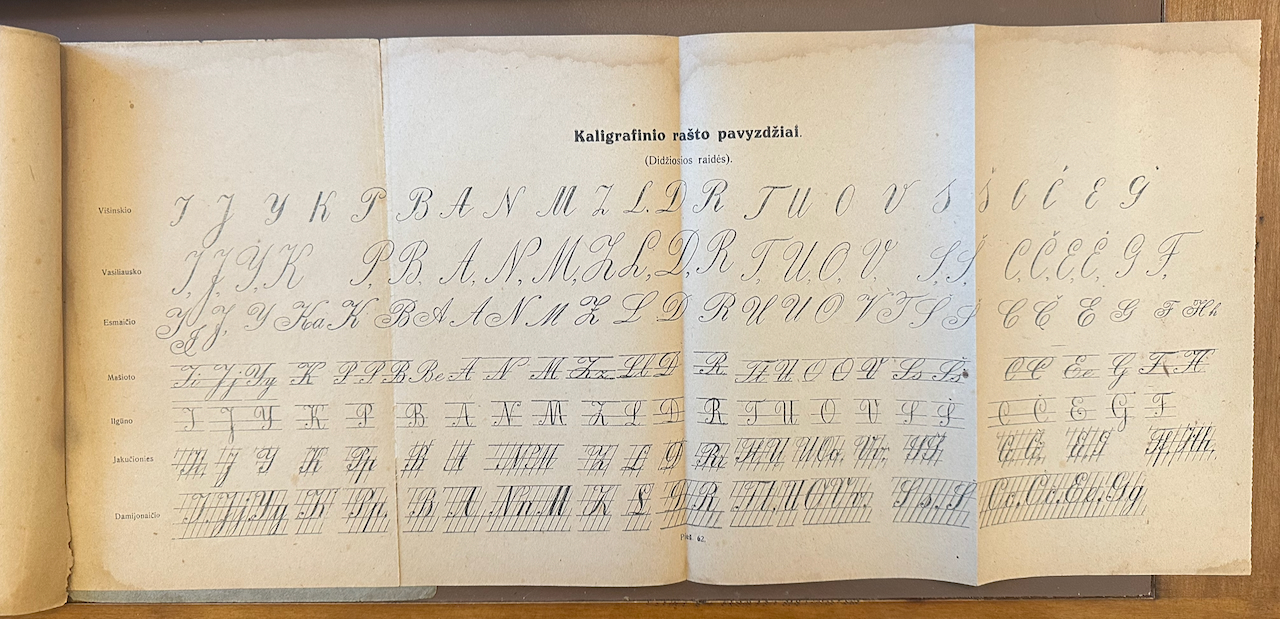 Kaligrafinio rašto pavyzdžiai.
(Didžiosios raidės).
Višinskio I J Y K P B A N M Z L D R T U O V S Š C Č E G
Vasiliausko I, J, Y, K P, B, A, N, M, Z L, D, R T, U, O, V, S, Š, C, Č, E, Ė, G F,
Esmaičio I J J, Y Ka K B A A N M Z L D R U U O V T S Š C Č E G F Hh
Mašioto Ii Jj Yy K P P B Be A N M Zz Ll D R Tt U O O V Ss Šs C C Ee G F H
Ilgūno I J Y K P B A N M Z L D R T U O V S Š C Č E G F
Jakučionies J Y K Pp B A N M Z L D
Damijonaičio I, Jj, Yy K Pp, B A Nn M Z L D R T U O Vv, S s, Š Cc, Čč, Ee, Gg
62.